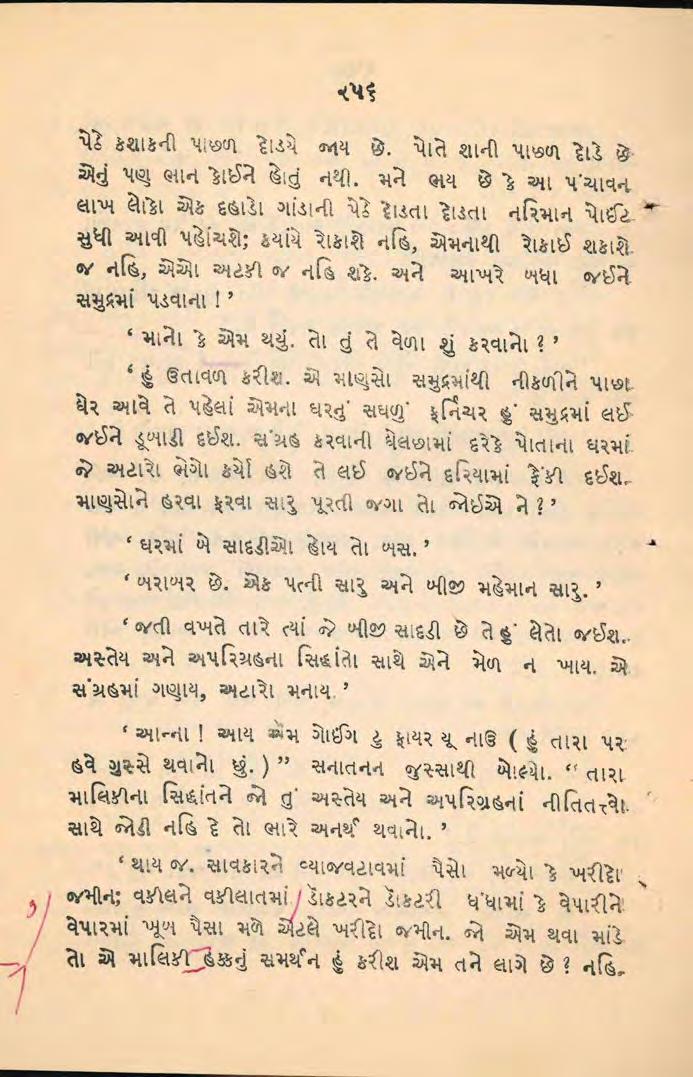 ૨૫૬
પેઠે કશાકની પાછળ દોડયે જાય છે. પોતે શાની પાછળ દોડે છે
એનું પણ ભાન કોઈને હોતું નથી. મને ભય છે કે આ પંચાવન
લાખ લોકો એક દહાડો ગાંડાની પેઠે દોડતા દોડતા નરિમાન પોઈંટ
સુધી આવી પહોંચશે; કયાંયે રોકાશે નહિ, એમનાથી રોકાઈ શકાશે
જ નહિ, એઓ અટકી જ નહિ શકે. અને આખરે બધા જઈને
સમુદ્રમાં પડવાના ! ’
‘ માનો કે એમ થયું. તો તું તે વેળા શું કરવાનો ? ’
‘ હું ઉતાવળ કરીશ. એ માણસો સમુદ્રમાંથી નીકળીને પાછા
ઘેર આવે તે પહેલાં એમના ઘરનું સઘળું ફર્નિચર હું સમુદ્રમાં લઈ
જઈને ડૂબાડી દઈશ. સંગ્રહ કરવાની ઘેલછામાં દરેકે પોતાના ઘરમાં
જે અટારો ભેગો કર્યો હશે તે લઈ જઈને દરિયામાં ફેંકી દઈશ.
માણસોને હરવા ફરવા સારુ પૂરતી જગા તો જોઈએ ને ? ’
‘ ઘરમાં બે સાદડીઓ હોય તો બસ. ’
‘ બરાબર છે. એક પત્ની સારુ અને બીજી મહેમાન સારુ. ’
‘ જતી વખતે તારે ત્યાં જે બીજી સાદડી છે તે હું લેતો જઈશ.
અસ્તેય અને અપરિગ્રહના સિદ્ધાંતો સાથે એને મેળ ન ખાય. એ
સંગ્રહમાં ગણાય, અટારો મનાય. ’
‘ આન્ના ! આય એમ ગોઈંગ ટુ ફાયર યૂ નાઉ ( હું તારા પર
હવે ગુસ્સે થવાનો છું. ) ” સનાતનન જુસ્સાથી બોલ્યો. “ તારા
માલિકીના સિદ્ધાંતને જો તું અસ્તેય અને અપરિગ્રહનાં નીતિતત્ત્વો
સાથે જોડી નહિ દે તો ભારે અનર્થ થવાનો. ’
‘ થાય જ. સાવકારને વ્યાજવટાવમાં પૈસો મળ્યો કે ખરીદો
જમીન; વકીલને વકીલાતમાં ડૉકટરને ડૉકટરી ધંધામાં કે વેપારીને
વેપારમાં ખૂબ પૈસા મળે એટલે ખરીદો જમીન. જો એમ થવા માંડે
તો એ માલિકી હક્કનું સમર્થન હું કરીશ એમ તને લાગે છે ? નહિ.